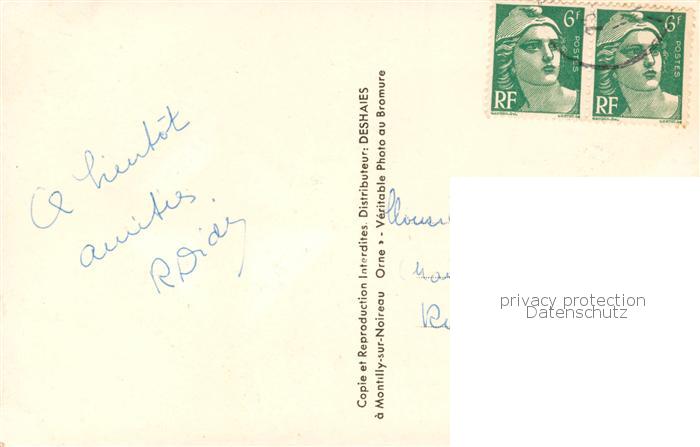 A bientôt
amitiés
R Didey
Copie et Reproduction Interdites. Distributeur: DESHAIES
à Montilly-sur-Noireau Orne » - Véritable Photo au Bromure
6F
POSTES
RF
6F
POSTES
RF
privacy protection
Datenschutz